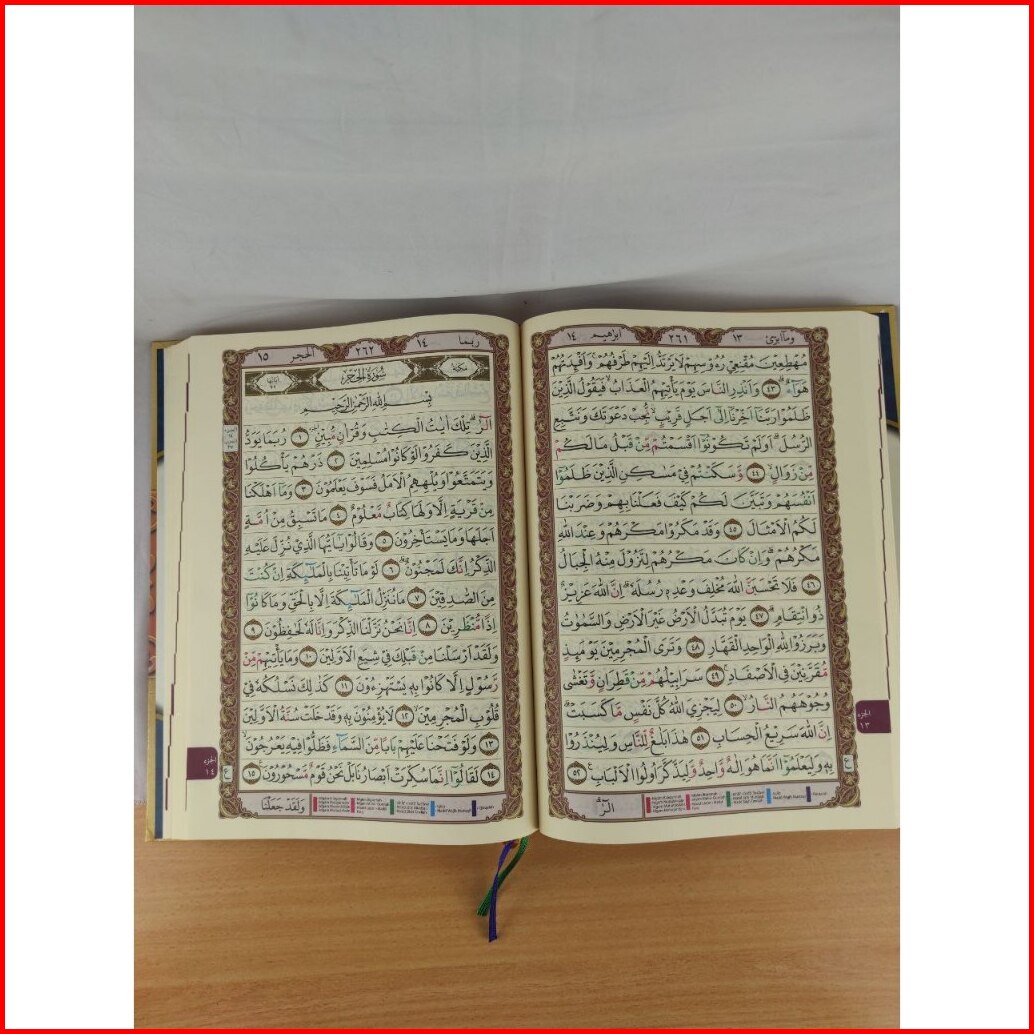 وما ابرئ ١٣ ٢٦١ ابرٰهيم ١٤
مُهْطِعِيْنَ مُقْنِعِيْ رُءُوْسِهِمْ لَا يَرْتَدُّ اِلَيْهِمْ طَرْفُهُمْ ۚوَاَفْـِٕدَتُهُمْ
هَوَاۤءٌ ۗ ٤٣ وَاَنْذِرِ النَّاسَ يَوْمَ يَأْتِيْهِمُ الْعَذَابُ فَيَقُوْلُ الَّذِيْنَ
ظَلَمُوْا رَبَّنَآ اَخِّرْنَآ اِلٰٓى اَجَلٍ قَرِيْبٍۙ نُّجِبْ دَعْوَتَكَ وَنَتَّبِعِ
الرُّسُلَ ۗاَوَلَمْ تَكُوْنُوْٓا اَقْسَمْتُمْ مِّنْ قَبْلُ مَا لَكُمْ
مِّنْ زَوَالٍۙ ٤٤ وَّسَكَنْتُمْ فِيْ مَسٰكِنِ الَّذِيْنَ ظَلَمُوْٓا
اَنْفُسَهُمْ وَتَبَيَّنَ لَكُمْ كَيْفَ فَعَلْنَا بِهِمْ وَضَرَبْنَا
لَكُمُ الْاَمْثَالَ ٤٥ وَقَدْ مَكَرُوْا مَكْرَهُمْ وَعِنْدَ اللّٰهِ
مَكْرُهُمْ ۗوَاِنْ كَانَ مَكْرُهُمْ لِتَزُوْلَ مِنْهُ الْجِبَالُ
٤٦ فَلَا تَحْسَبَنَّ اللّٰهَ مُخْلِفَ وَعْدِهٖ رُسُلَهٗ ۗاِنَّ اللّٰهَ عَزِيْزٌ
ذُو انْتِقَامٍۗ ٤٧ يَوْمَ تُبَدَّلُ الْاَرْضُ غَيْرَ الْاَرْضِ وَالسَّمٰوٰتُ
وَبَرَزُوْا لِلّٰهِ الْوَاحِدِ الْقَهَّارِ ٤٨ وَتَرَى الْمُجْرِمِيْنَ يَوْمَىِٕذٍ
مُّقَرَّنِيْنَ فِى الْاَصْفَادِۚ ٤٩ سَرَابِيْلُهُمْ مِّنْ قَطِرَانٍ وَّتَغْشٰى
وُجُوْهَهُمُ النَّارُۙ ٥٠ لِيَجْزِيَ اللّٰهُ كُلَّ نَفْسٍ مَّا كَسَبَتْ ۗ
اِنَّ اللّٰهَ سَرِيْعُ الْحِسَابِ ٥١ هٰذَا بَلٰغٌ لِّلنَّاسِ وَلِيُنْذَرُوْا
بِهٖ وَلِيَعْلَمُوْٓا اَنَّمَا هُوَ اِلٰهٌ وَّاحِدٌ وَّلِيَذَّكَّرَ اُولُوا الْاَلْبَابِ ࣖ ٥٢
الجزء
١٣
الٓرٰ
ربما ١٤ ٢٦٢ الحجر ١٥
مكية
سُوْرَةُ الْحِجْرِ
بِسْمِ اللّٰهِ الرَّحْمٰنِ الرَّحِيْمِ
الۤرٰ ۗتِلْكَ اٰيٰتُ الْكِتٰبِ وَقُرْاٰنٍ مُّبِيْنٍ ١ رُبَمَا يَوَدُّ
الَّذِيْنَ كَفَرُوْا لَوْ كَانُوْا مُسْلِمِيْنَ ٢ ذَرْهُمْ يَأْكُلُوْا
وَيَتَمَتَّعُوْا وَيُلْهِهِمُ الْاَمَلُ فَسَوْفَ يَعْلَمُوْنَ ٣ وَمَآ اَهْلَكْنَا
مِنْ قَرْيَةٍ اِلَّا وَلَهَا كِتَابٌ مَّعْلُوْمٌ ٤ مَا تَسْبِقُ مِنْ اُمَّةٍ
اَجَلَهَا وَمَا يَسْتَأْخِرُوْنَ ٥ وَقَالُوْا يٰٓاَيُّهَا الَّذِيْ نُزِّلَ عَلَيْهِ
الذِّكْرُ اِنَّكَ لَمَجْنُوْنٌ ۗ ٦ لَوْمَا تَأْتِيْنَا بِالْمَلٰۤىِٕكَةِ اِنْ كُنْتَ
مِنَ الصّٰدِقِيْنَ ٧ مَا نُنَزِّلُ الْمَلٰۤىِٕكَةَ اِلَّا بِالْحَقِّ وَمَا كَانُوْٓا
اِذًا مُّنْظَرِيْنَ ٨ اِنَّا نَحْنُ نَزَّلْنَا الذِّكْرَ وَاِنَّا لَهٗ لَحٰفِظُوْنَ ٩
وَلَقَدْ اَرْسَلْنَا مِنْ قَبْلِكَ فِيْ شِيَعِ الْاَوَّلِيْنَ ١٠ وَمَا يَأْتِيْهِمْ مِّنْ
رَّسُوْلٍ اِلَّا كَانُوْا بِهٖ يَسْتَهْزِءُوْنَ ١١ كَذٰلِكَ نَسْلُكُهٗ فِيْ
قُلُوْبِ الْمُجْرِمِيْنَۙ ١٢ لَا يُؤْمِنُوْنَ بِهٖ وَقَدْ خَلَتْ سُنَّةُ الْاَوَّلِيْنَ
١٣ وَلَوْ فَتَحْنَا عَلَيْهِمْ بَابًا مِّنَ السَّمَاۤءِ فَظَلُّوْا فِيْهِ يَعْرُجُوْنَۙ
١٤ لَقَالُوْٓا اِنَّمَا سُكِّرَتْ اَبْصَارُنَا بَلْ نَحْنُ قَوْمٌ مَّسْحُوْرُوْنَ ࣖ ١٥
الجزء
١٤
وَلَقَدْ جَعَلْنَا